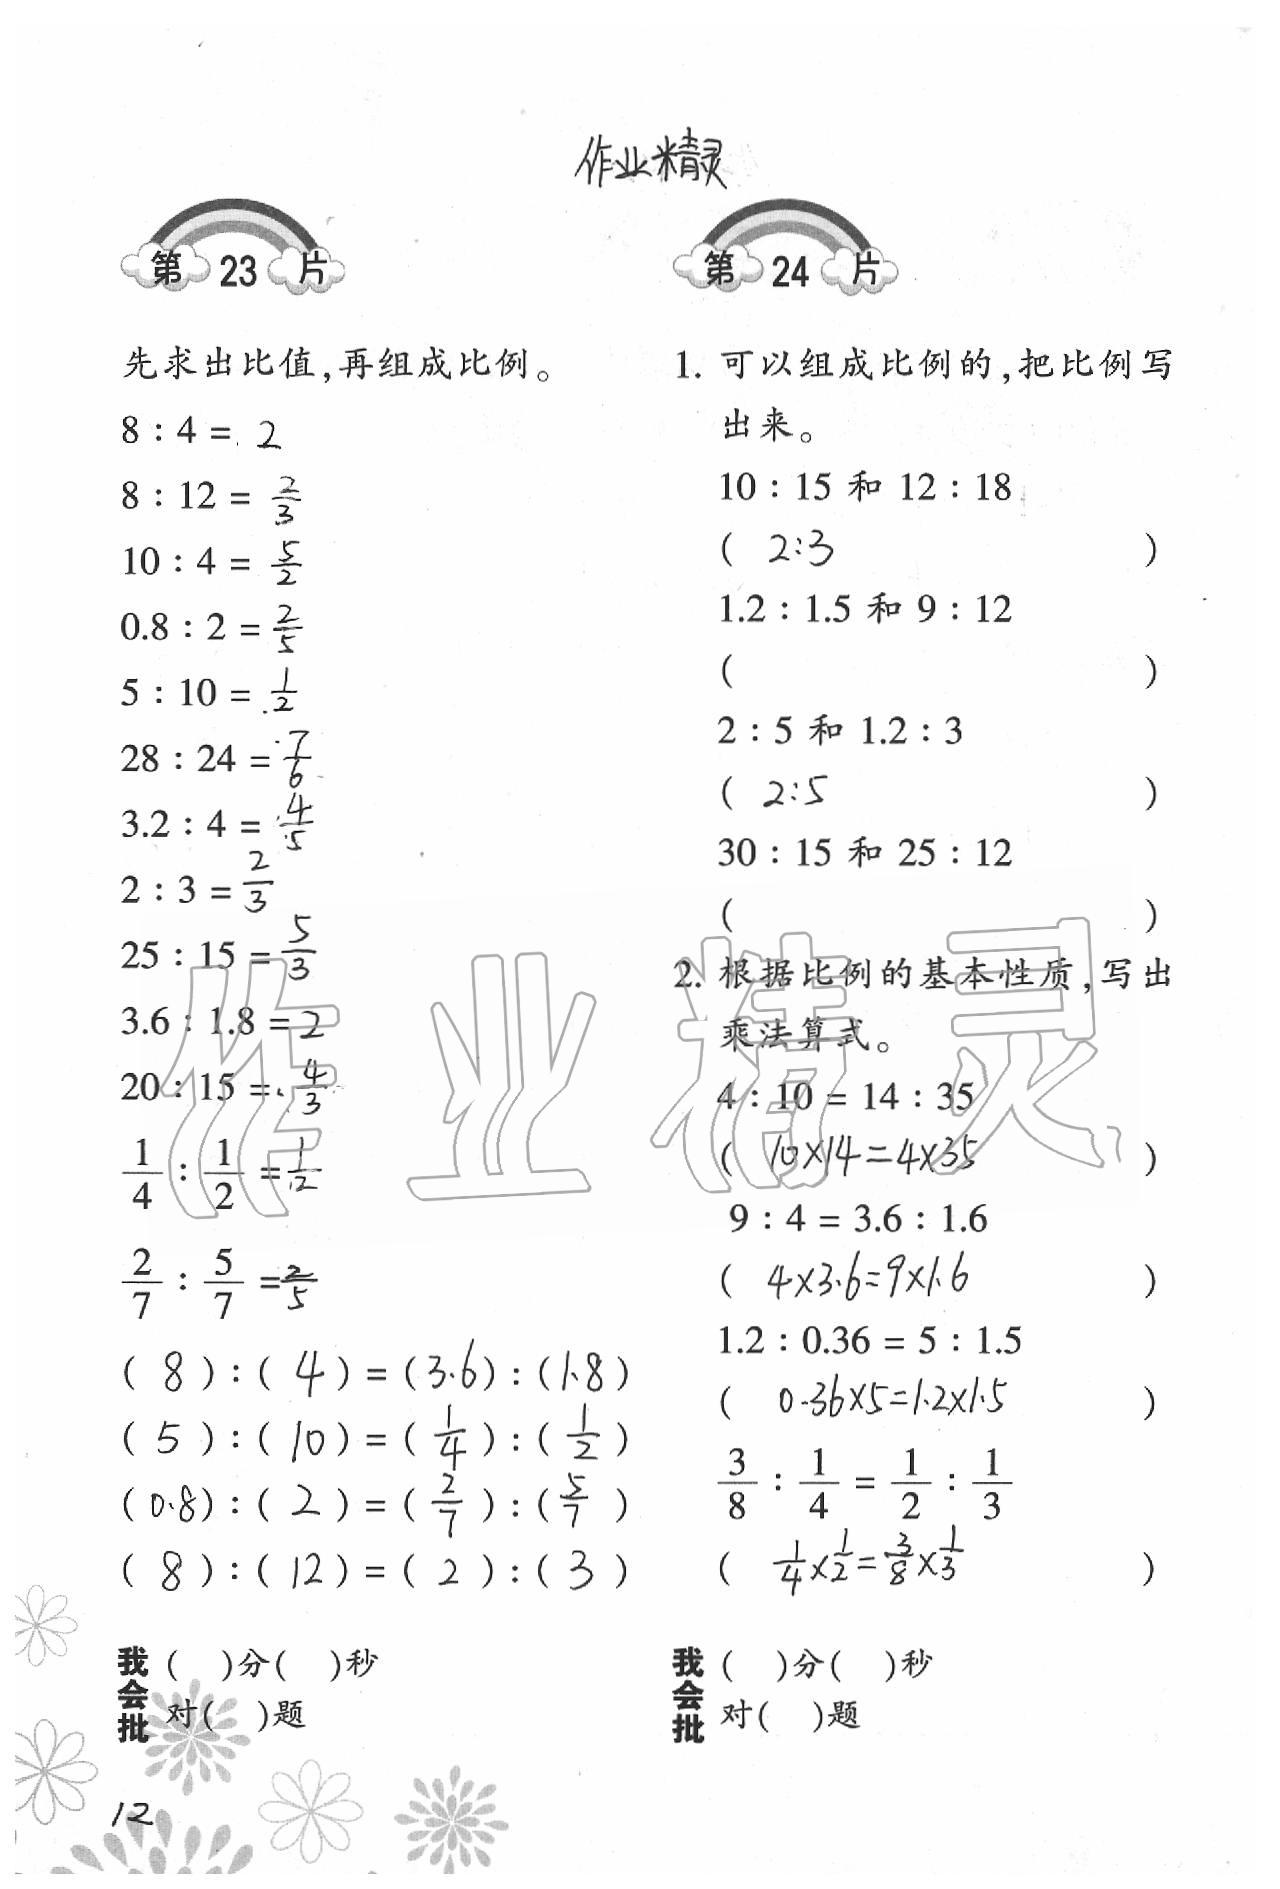 作业精灵
第 23 片
先求出比值,再组成比例。
8 : 4 = 2
8 : 12 = 2/3
10 : 4 = 5/2
0.8 : 2 = 2/5
5 : 10 = 1/2
28 : 24 = 7/6
3.2 : 4 = 4/5
2 : 3 = 2/3
25 : 15 = 5/3
3.6 : 1.8 = 2
20 : 15 = 4/3
1/4 : 1/2 = 1/2
2/7 : 5/7 = 2/5
( 8 ) : ( 4 ) = ( 3.6 ) : ( 1.8 )
( 5 ) : ( 10 ) = ( 1/4 ) : ( 1/2 )
( 0.8 ) : ( 2 ) = ( 2/7 ) : ( 5/7 )
( 8 ) : ( 12 ) = ( 2 ) : ( 3 )
我会批
( )分( )秒
对( )题
12
第 24 片
1. 可以组成比例的,把比例写
出来。
10 : 15 和 12 : 18
( 2:3 )
1.2 : 1.5 和 9 : 12
( )
2 : 5 和 1.2 : 3
( 2:5 )
30 : 15 和 25 : 12
( )
2. 根据比例的基本性质,写出
乘法算式。
4 : 10 = 14 : 35
( 10×14=4×35 )
9 : 4 = 3.6 : 1.6
( 4×3.6=9×1.6 )
1.2 : 0.36 = 5 : 1.5
( 0.36×5=1.2×1.5 )
3/8 : 1/4 = 1/2 : 1/3
( 1/4×1/2=3/8×1/3 )
我会批
( )分( )秒
对( )题
作业精灵